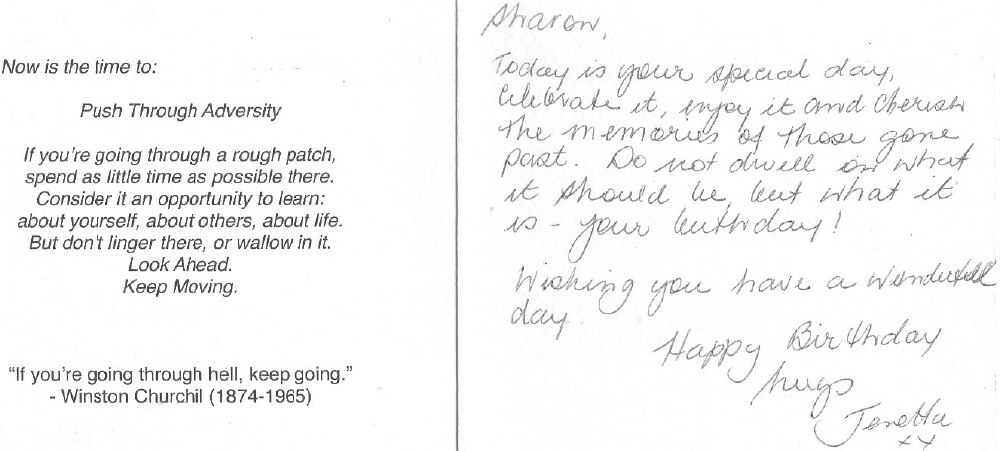 Now is the time to:
Push Through Adversity
If you're going through a rough patch,
spend as little time as possible there.
Consider it an opportunity to learn:
about yourself, about others, about life.
But don't linger there, or wallow in it.
Look Ahead.
Keep Moving.
“If you're going through hell, keep going.”
- Winston Churchil (1874-1965)
Sharon,
Today is your special day,
Celebrate it, enjoy it and cherish
the memories of those gone
past. Do not dwell on what
it should be, but what it
is - your birthday!
Wishing you have a wonderful
day.
Happy Birthday
hugs
Jenetta
xx